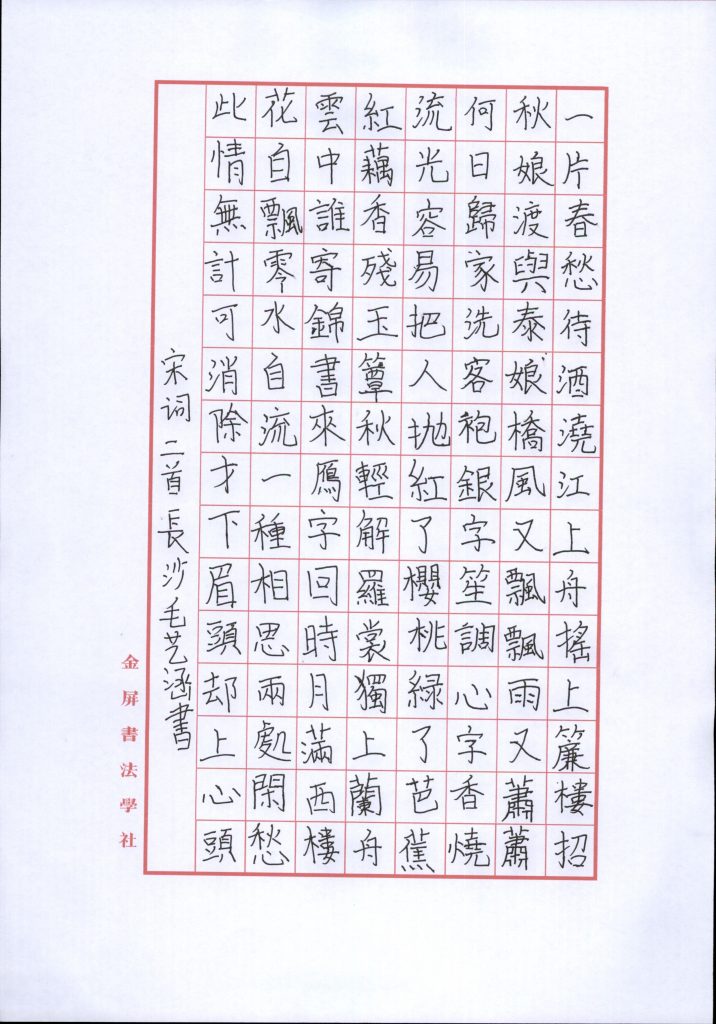 一片春愁待酒澆江上舟搖上簾樓招
秋娘渡與泰娘橋風又飄飄雨又蕭蕭
何日歸家洗客袍銀字笙調心字香燒
流光容易把人抛紅了櫻桃緑了芭蕉
紅藕香殘玉簟秋輕解羅裳獨上蘭舟
雲中誰寄錦書來鴈字回時月滿西樓
花自飄零水自流一種相思兩處閑愁
此情無計可消除才下眉頭却上心頭
宋词二首長沙毛艺涵書
金屏書法學社